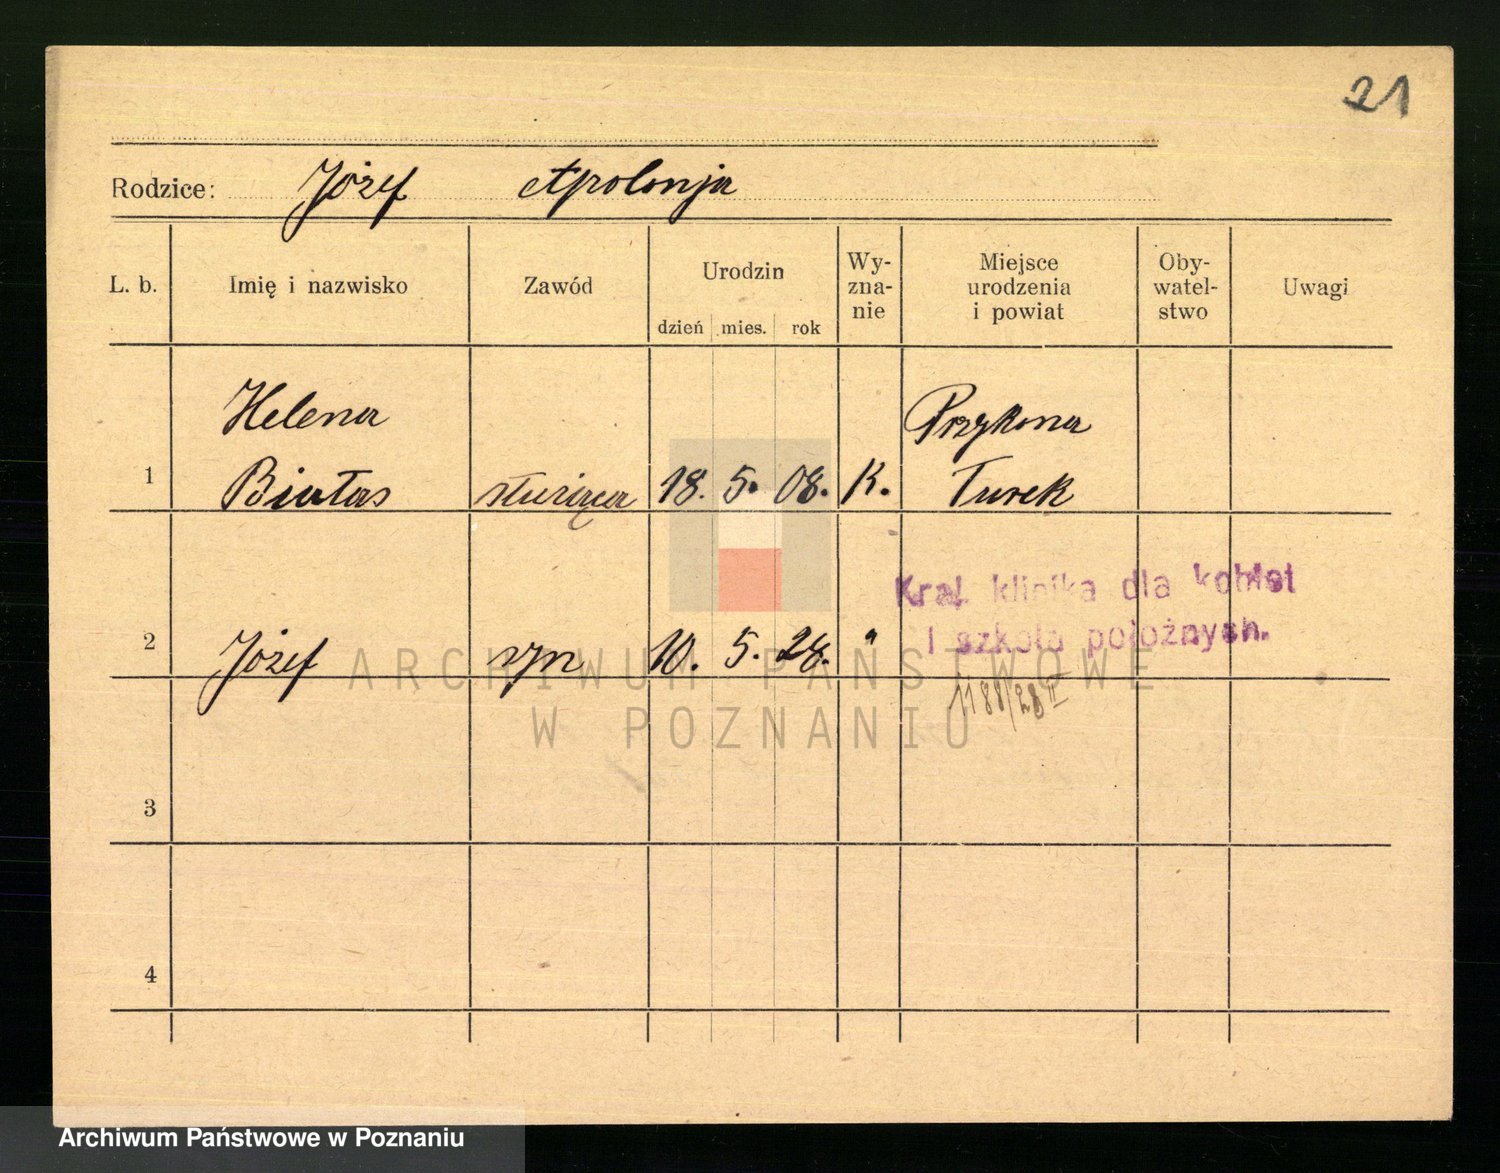 21
Rodzice: Józef Apolonja
L. b. Imię i nazwisko Zawód Urodzin dzień mies. rok Wy-zna-nie Miejsce urodzenia i powiat Oby-watel-stwo Uwagi
Helena Przykona
1 Białas służąca 18. 5. 08. K. Turek
Kraj. klinika dla kobiet
i szkoła położnych.
2 Józef syn 10. 5. 28. "
ARCHIWUM PAŃSTWOWE
1188/28 II
W POZNANIU
3
4
Archiwum Państwowe w Poznaniu